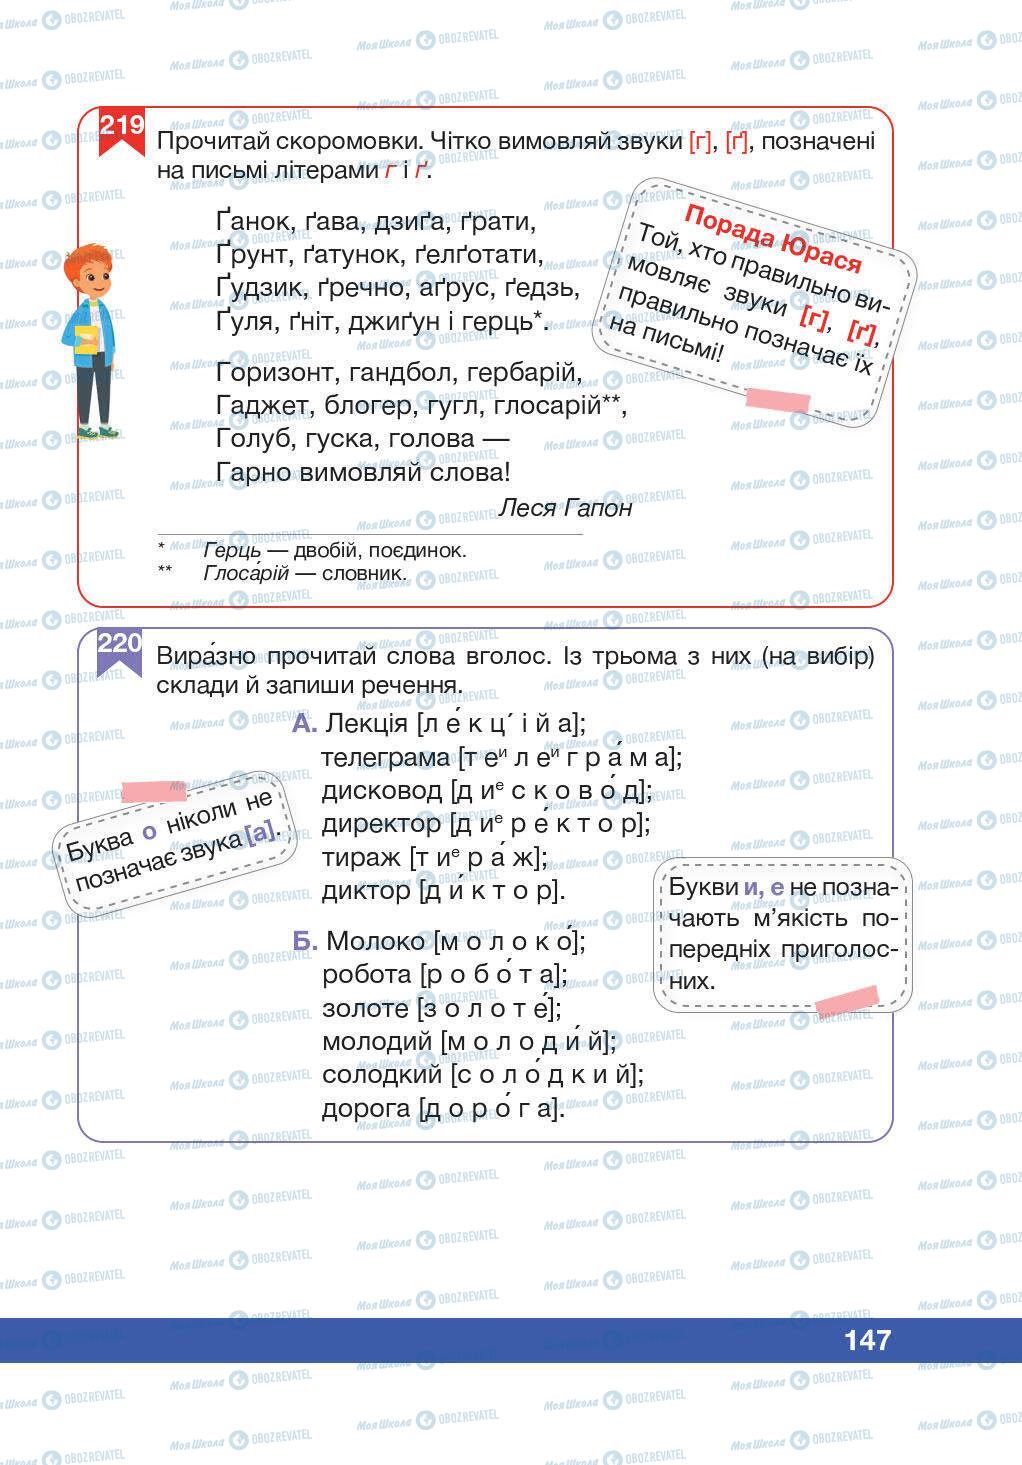 219
Прочитай скоромовки. Чітко вимовляй звуки [г], [ґ], позначені
на письмі літерами г і ґ.
Ґанок, ґава, дзиґа, ґрати,
Ґрунт, ґатунок, ґелґотати,
Ґудзик, ґречно, аґрус, ґедзь,
Ґуля, ґніт, джиґун і герць*.
Порада Юрася
Той, хто правильно ви-
мовляє звуки [г], [ґ],
правильно позначає їх
на письмі!
Горизонт, гандбол, гербарій,
Гаджет, блогер, гугл, глосарій**,
Голуб, гуска, голова —
Гарно вимовляй слова!
Леся Гапон
* Герць — двобій, поєдинок.
** Глоса́рій — словник.
220
Вира́зно прочитай слова вголос. Із трьома з них (на вибір)
склади й запиши речення.
А. Лекція [л е́ к ц´ і й а];
телеграма [т еи л еи г р а́ м а];
дисковод [д ие с к о в о́ д];
директор [д ие р е́ к т о р];
тираж [т ие р а́ ж];
диктор [д и́ к т о р].
Буква о ніколи не
позначає звука [а].
Букви и, е не позна-
чають м’якість по-
передніх приголос-
них.
Б. Молоко [м о л о к о́];
робота [р о б о́ т а];
золоте [з о л о т е́];
молодий [м о л о д и́ й];
солодкий [с о л о́ д к и й];
дорога [д о р о́ г а].
147
МояШкола OBOZREVATEL